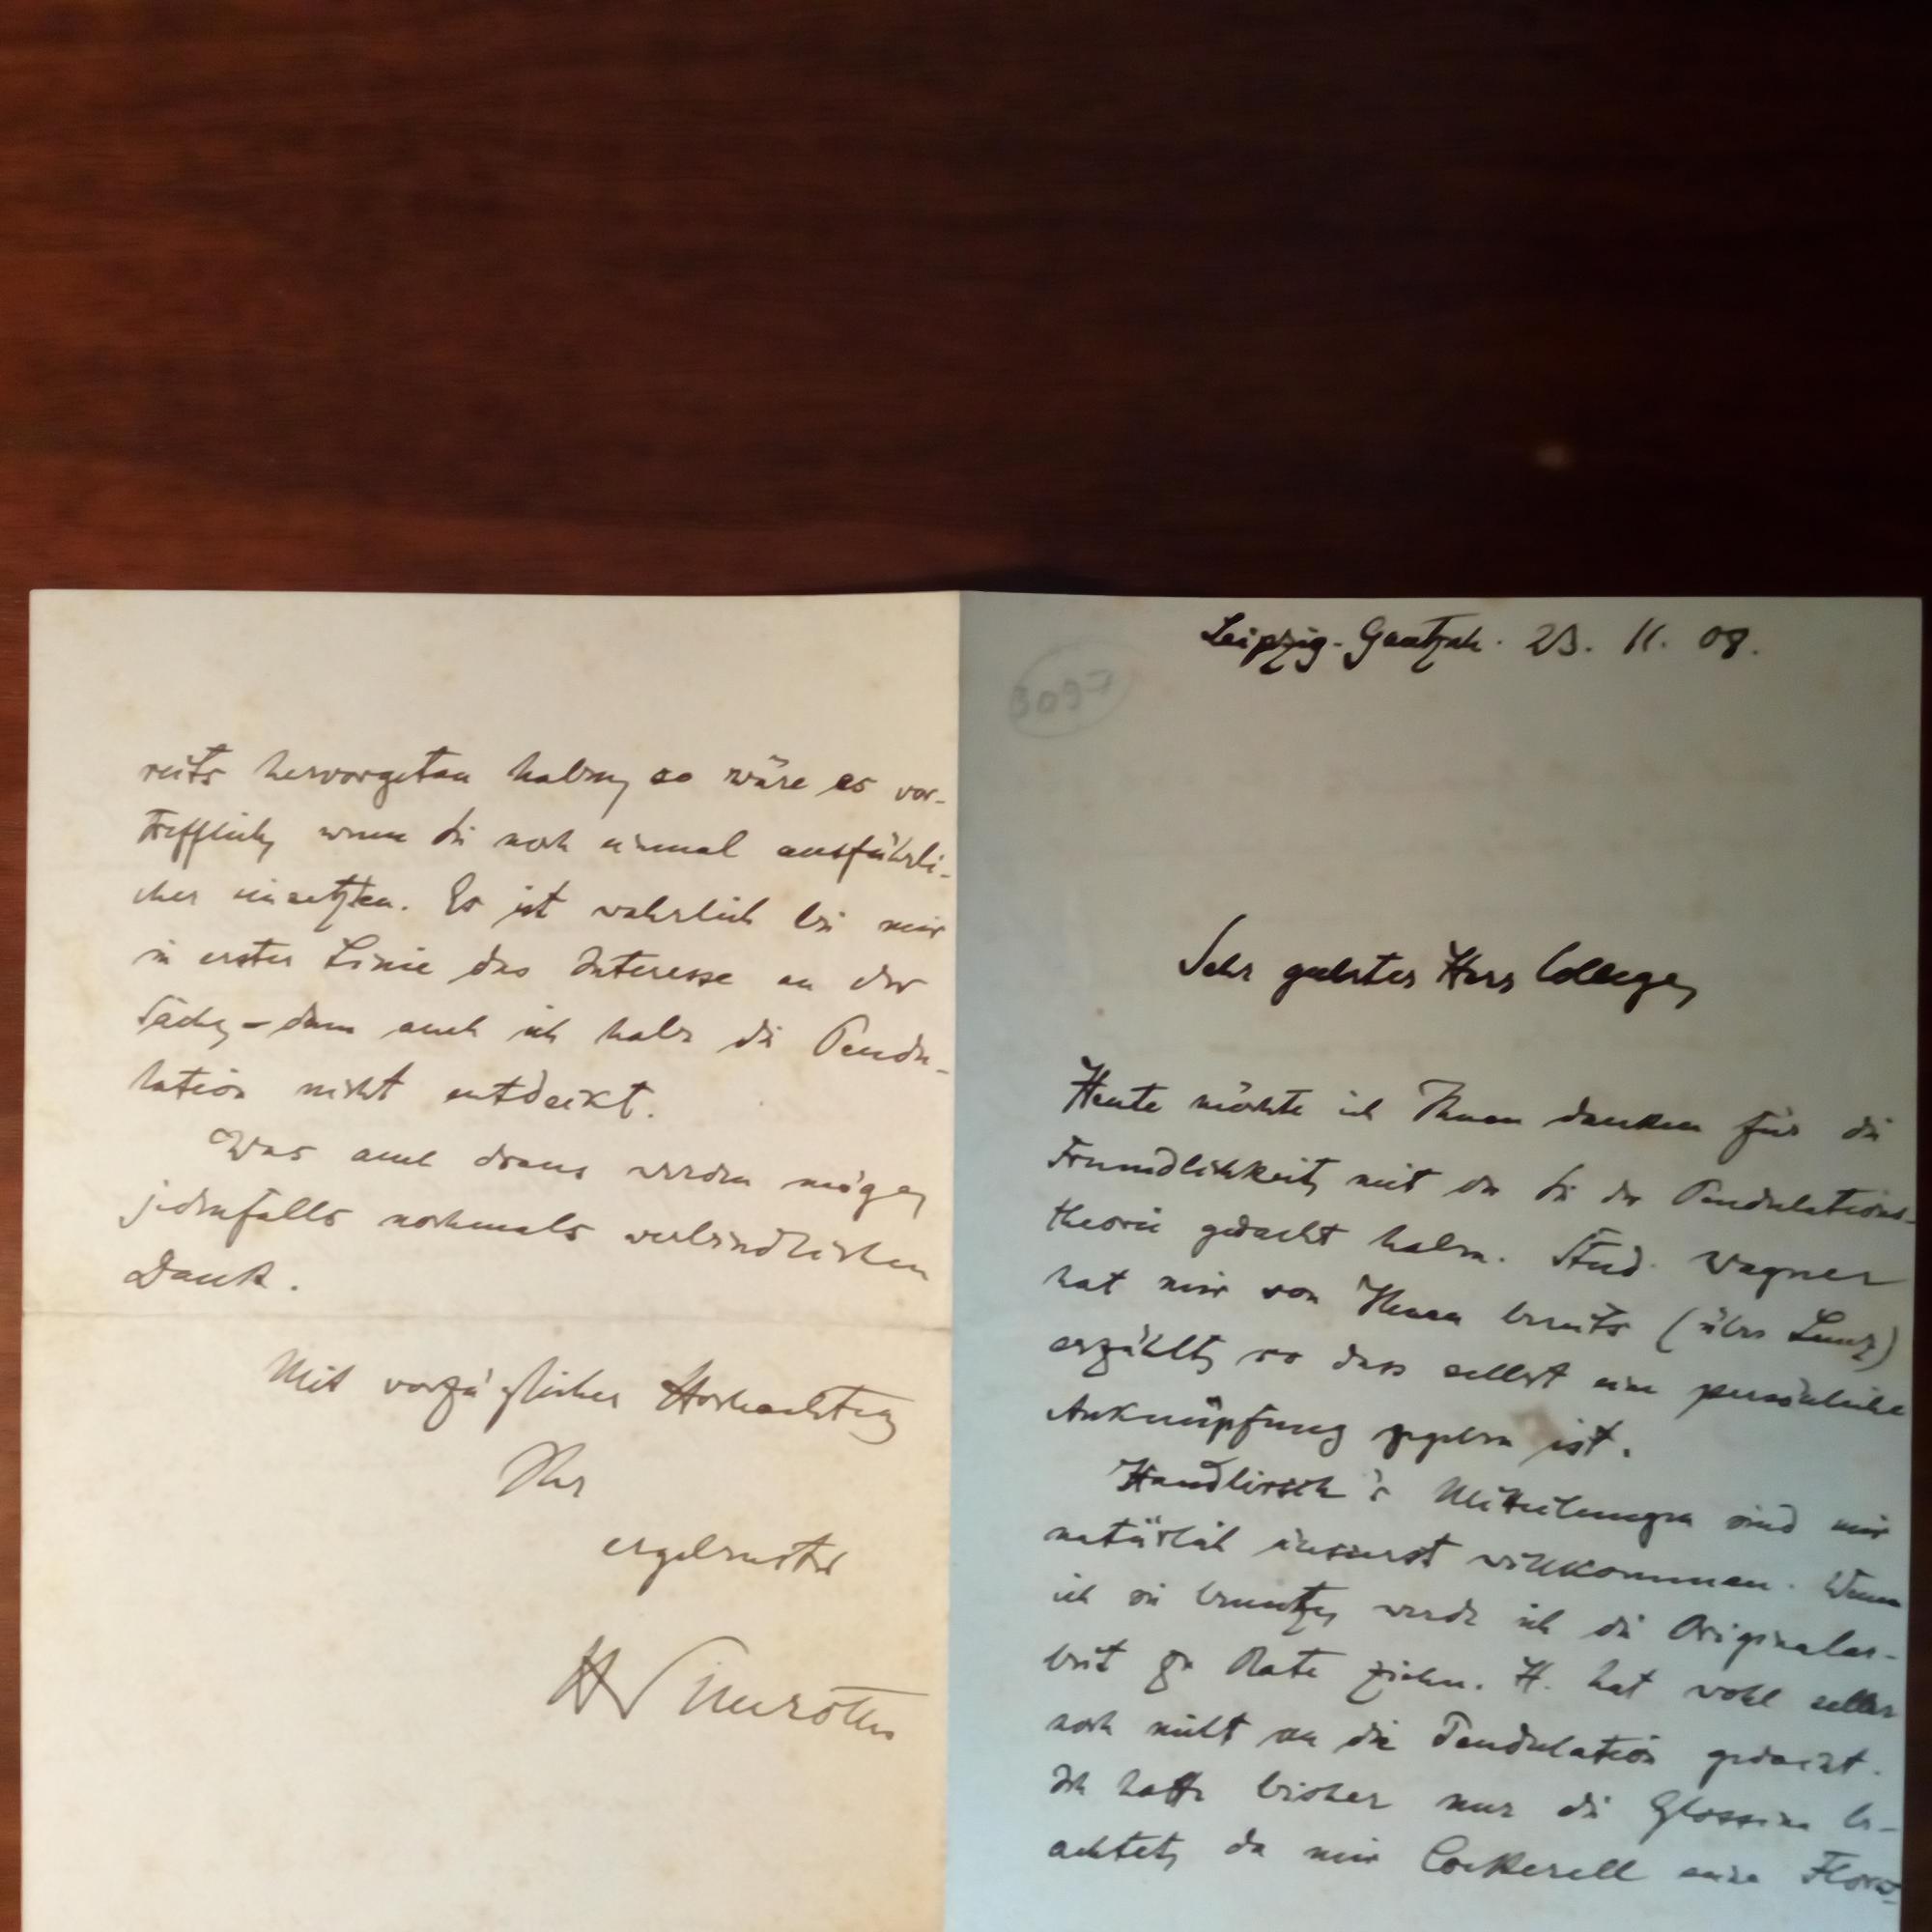 Leipzig-Gautzsch. 23. 11. 08.
3097
Sehr geehrter Herr College,
Heute möchte ich Ihnen danken für die
Freundlichkeit, mit der Sie der Pendulations-
theorie gedacht haben. Stud. Wagner
hat mir von Ihnen bereits (über Lunz)
erzählt, so dass selbst eine persönliche
Anknüpfung gegeben ist.
Handlirsch's Mitteilungen sind mir
natürlich äusserst willkommen. Wenn
ich sie benutze, werde ich die Originalar-
beit zu Rate ziehen. H. hat wohl selber
noch nicht an die Pendulation gedacht.
Ich hatte bisher nur die Glossina be-
achtet, da mir Cockerell seine
reits hervorgetan haben, so wäre es vor-
trefflich, wenn Sie noch einmal ausführli-
cher einsetzten. Es ist wahrlich bei mir
in erster Linie das Interesse an der
Sache, – denn auch ich habe die Pendu-
lation nicht entdeckt.
Was auch draus werden möge,
jedenfalls nochmals verbindlichen
Dank.
Mit vorzüglicher Hochachtung
Ihr
ergebenster
H Simroth